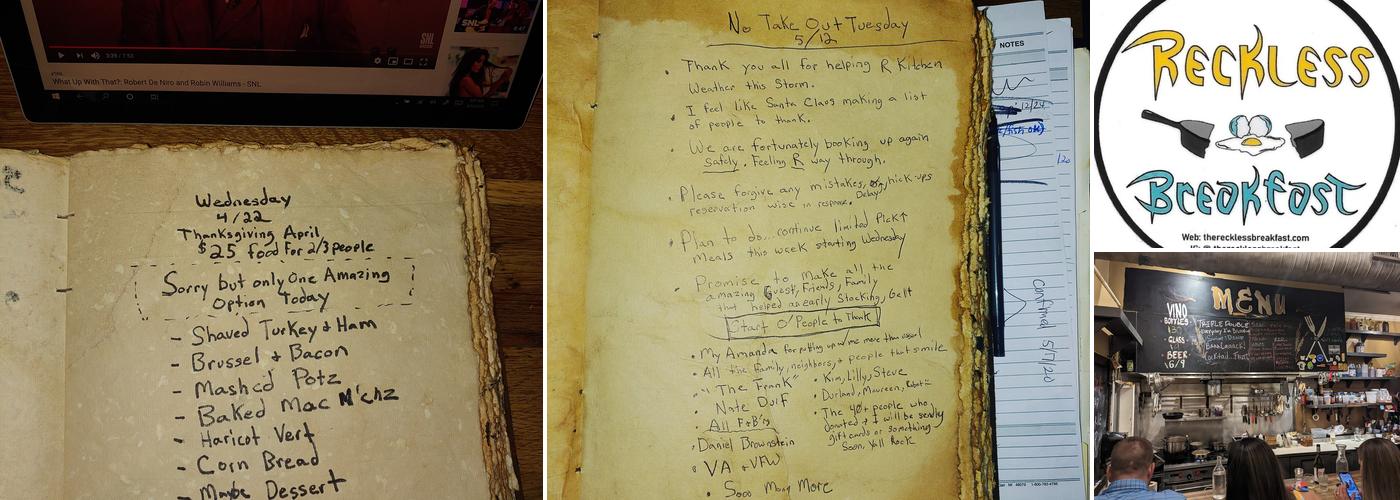 SNL
3:39 / 7:53
SNL
#SNL
What Up With That?: Robert De Niro and Robin Williams - SNL
Wednesday
4/22
Thanksgiving April
$25 food for 2/3 people
Sorry but only One Amazing
Option Today
- Shaved Turkey & Ham
- Brussel & Bacon
- Mashed Potz
- Baked Mac N'chz
- Haricot Vert
- Corn Bread
- Maybe Dessert
No Take Out Tuesday
5/12
• Thank you all for helping R Kitchen
Weather this Storm.
• I feel like Santa Claos making a list
of people to thank.
• We are fortunately booking up again
safely. Feeling R way through.
• Please forgive any mistakes, hick-ups
Delay
reservation wise in response.
• Plan to do... continue limited Pick↑
meals this week starting Wednesday
• Promise to make all the
amazing Guest, Friends, Family
that helped an early Stocking, Gelt
Start O' People to Thank
• My Amanda for putting up w/me more than usual
• All the Family, neighbors, & people that smile
• "The Frank"
• Nate Durf
• All F&B'rs
• Daniel Brownstein
• VA & VFW
• Sooo Many More
• Kim, Lilly, Steve
• Durland, Maureen, Robt
• The 40+ people who
donated & I will be sending
gift cards or something
Soon, Yall Rock
NOTES
12/24
confirmed 5/7/20
RECKLESS
BREAKFAST
Web: therecklessbreakfast.com
MENU
VINO
BOTTLES
GLASS
BEER
6/9
TRIPLE DOUBLE